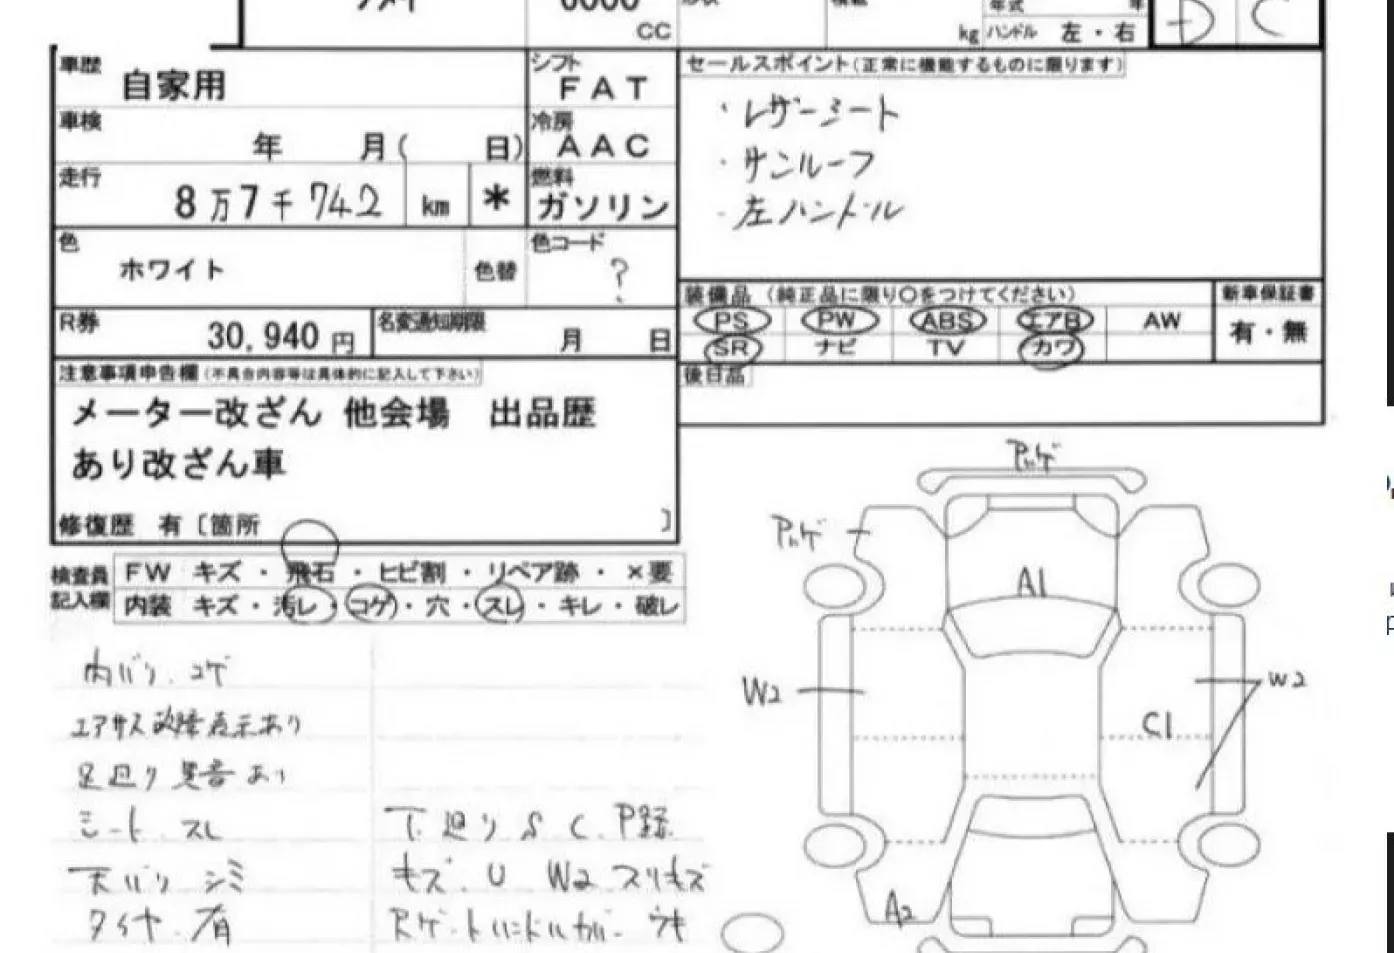 6000
CC
年式 年
kg ハンドル 左・右
D C
車歴 自家用
シフト FAT
車検 年 月( 日)
冷房 AAC
走行 8万7千742 km *
燃料 ガソリン
色 ホワイト 色替
色コード ?
R券 30,940円
名変通知期限 月 日
注意事項申告欄(不具合内容等は具体的に記入して下さい)
メーター改ざん 他会場 出品歴
あり改ざん車
修復歴 有〔箇所 〕
セールスポイント(正常に機能するものに限ります)
・レザーシート
・サンルーフ
・左ハンドル
装備品 (純正品に限り○をつけてください)
PS PW ABS エアB AW
SR ナビ TV カワ
新車保証書
有・無
後日品
検査員記入欄
FW キズ・飛石・ヒビ割・リペア跡・×要
内装 キズ・汚レ・コゲ・穴・スレ・キレ・破レ
内バリ.コゲ
エアサス故障表示あり
足廻り異音あり
シート.スレ
天バリ シミ
タイヤ.有
下廻りS C.P録
キズ.U W2 スリキズ
ウキ
A1
W2
W2
C1
A2